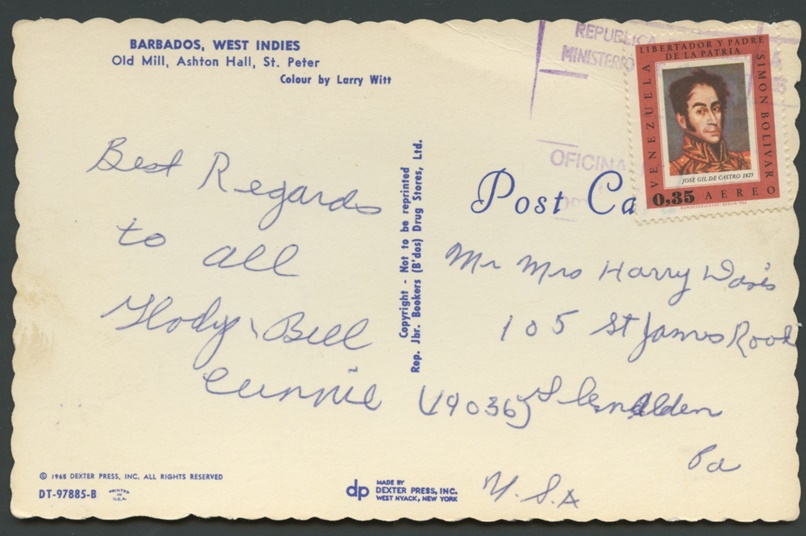 BARBADOS, WEST INDIES
Old Mill, Ashton Hall, St. Peter
Colour by Larry Witt
Best Regards
to all
Bell
Copyright - Not to be reprinted
Rep. Jhr. Bookers (B'dos) Drug Stores, Ltd.
REPUBLICA
MINISTERIO
OFICINA
LIBERTADOR Y PADRE
DE LA PATRIA
VENEZUELA
SIMON BOLIVAR
JOSE GIL DE CASTRO 1825
0,35 AEREO
Post Ca
Mr Mrs Harry Davis
105 St James Road
(19036)
Pa
U.S.A
© 1965 DEXTER PRESS, INC. ALL RIGHTS RESERVED
DT-97885-B
PRINTED
IN
U.S.A.
dp
MADE BY
DEXTER PRESS, INC.
WEST NYACK, NEW YORK